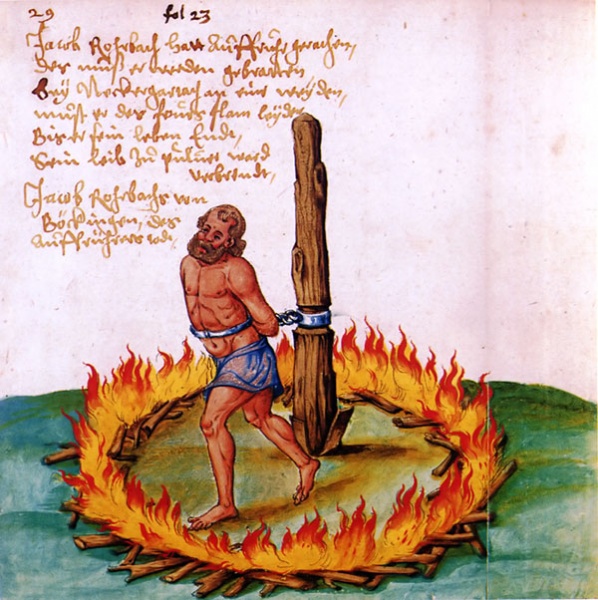 29 fol 23
Jacob Rohrbach hatt Auffruhr gemachen,
Des muß er werden gebratten
Bey Neckergartach an eine weyden,
muß er des feurs flam leyden
Bis er sein leben Ende,
Sein leib zu pulver ward
verbrendt,
Jacob Rohrbachs von
Böckingen, des
Auffrührers tod,